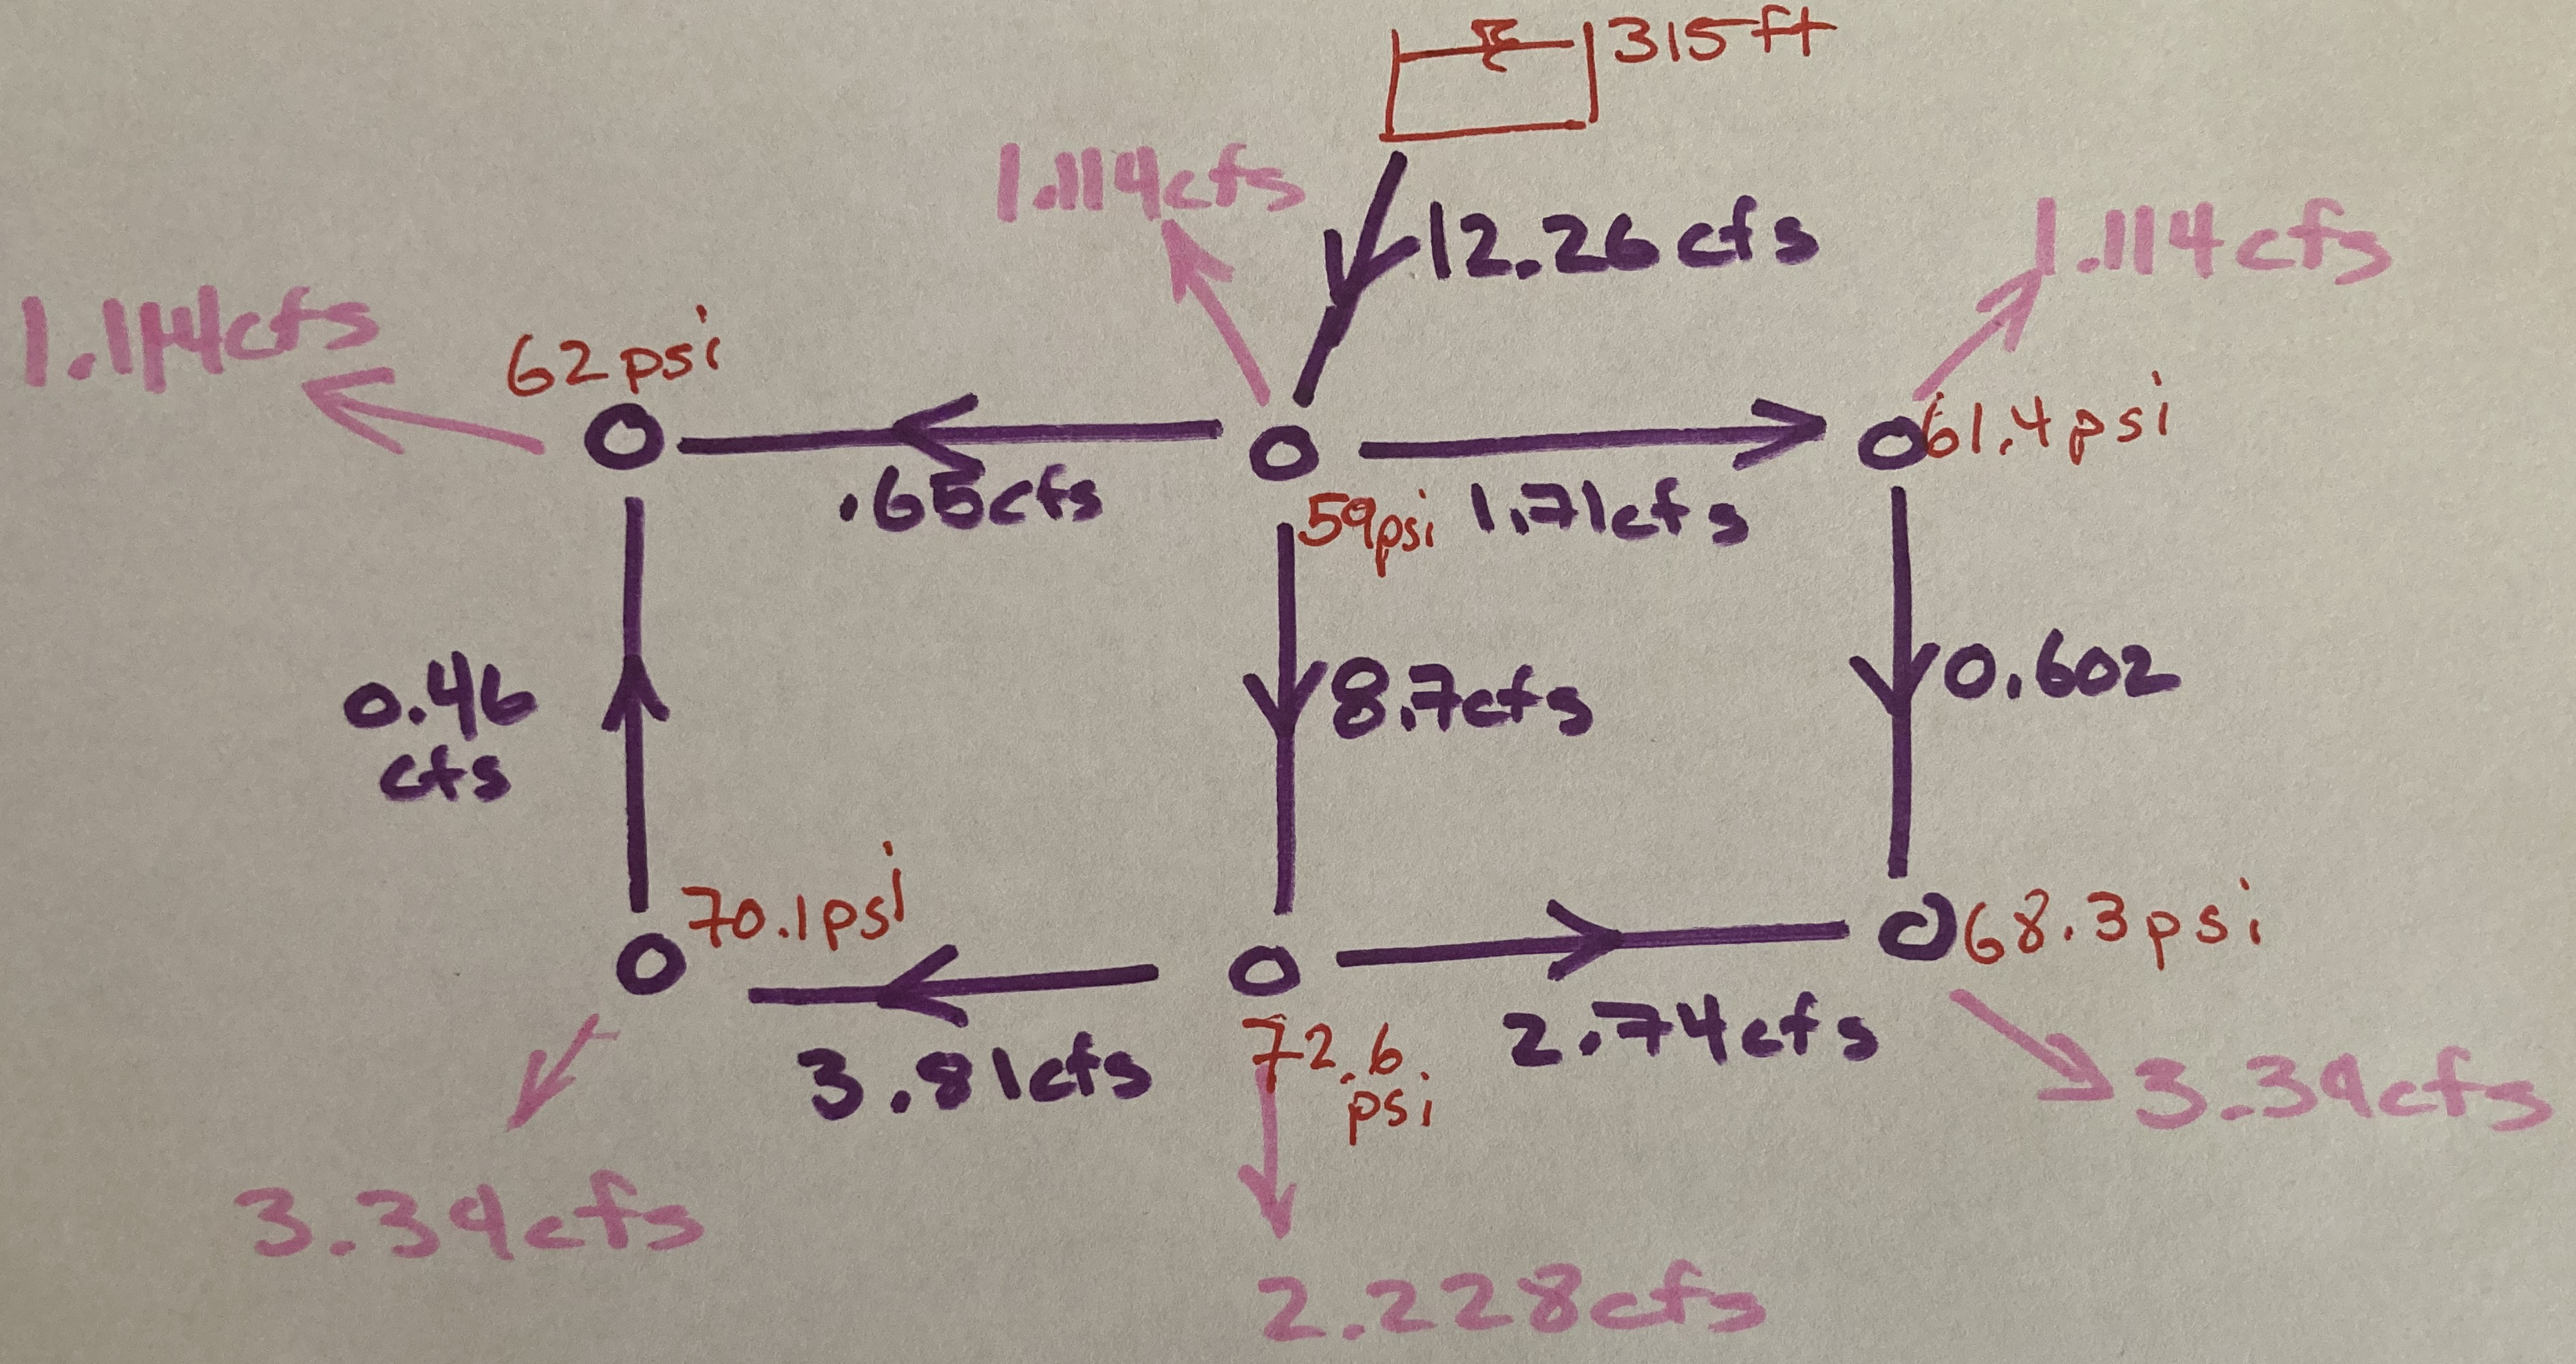 315ft
1.114cfs
12.26cfs
1.114cfs
1.114cfs
62psi
61.4psi
.65cfs
59psi
1.71cfs
0.46
cfs
8.7cfs
0.602
70.1psi
68.3psi
3.81cfs
72.6
psi
2.74cfs
3.34cfs
3.34cfs
2.228cfs